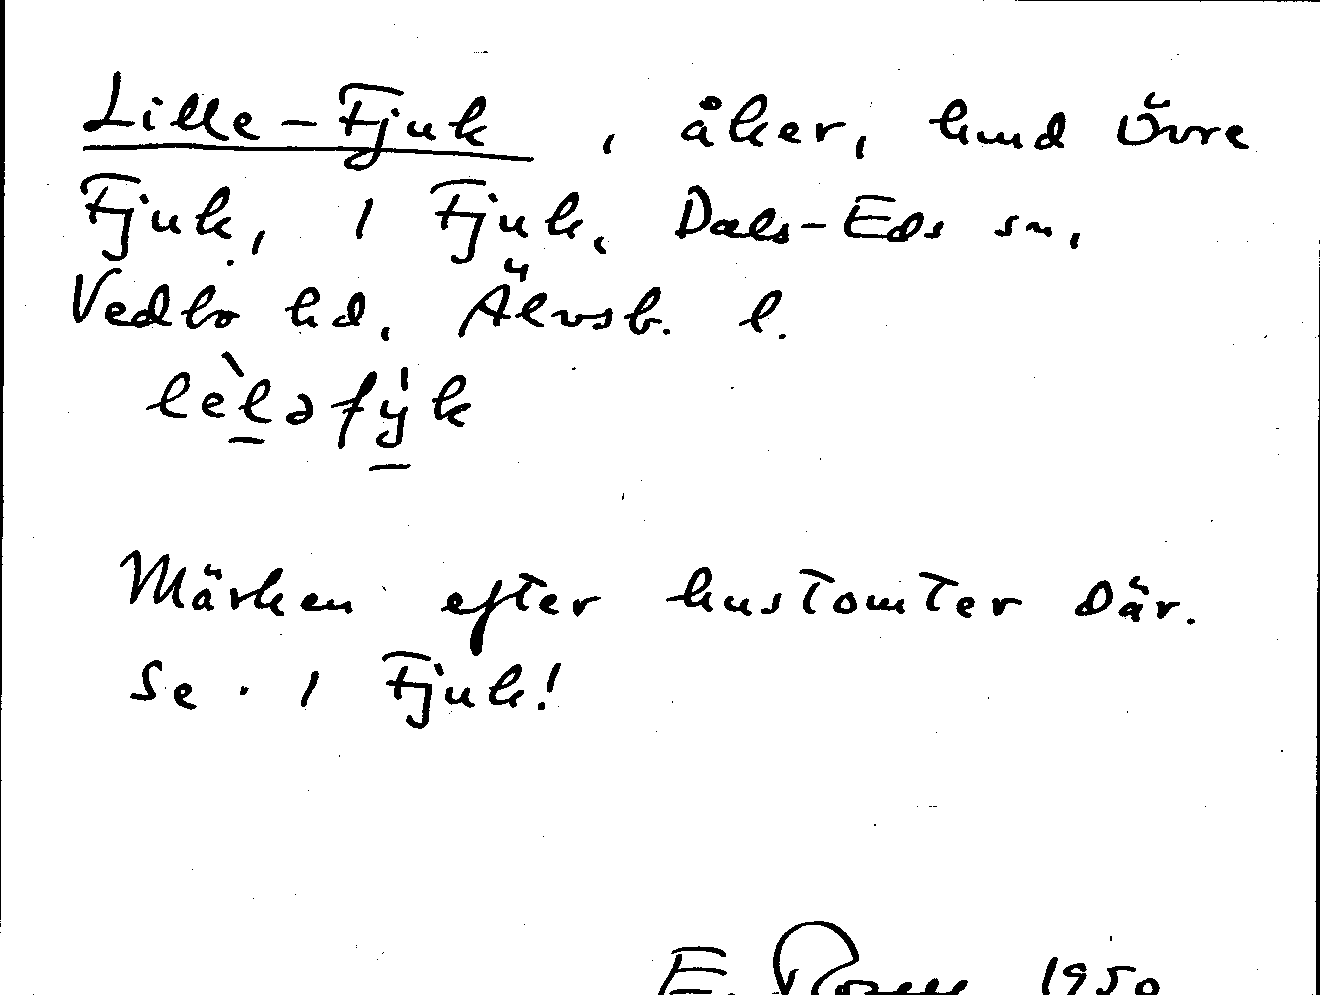 Lille-Fjuk, åker, hmd Övre
Fjuk, 1 Fjuk, Dals-Eds sn,
Vedbo hd, Älvsb. l.
lèləfy̍k
Märken efter hustomter där.
Se 1 Fjuk!
E. Rosell 1950